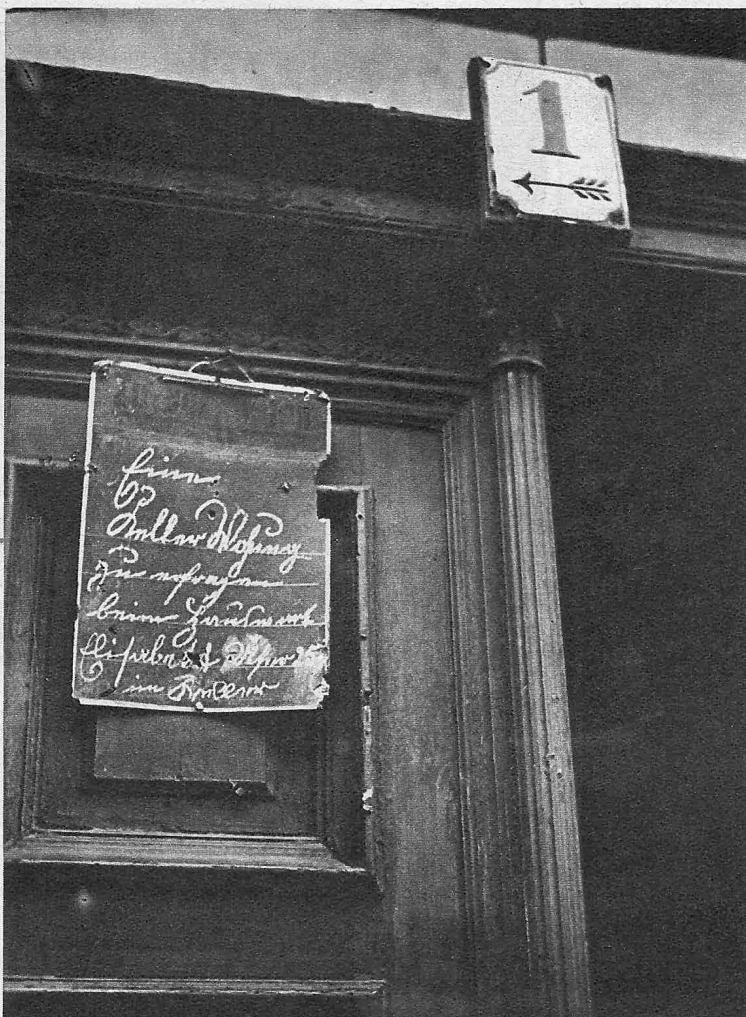 1
Eine
Keller Wohung
zu erfragen
beim Hauswart
Elisabeth
im Keller